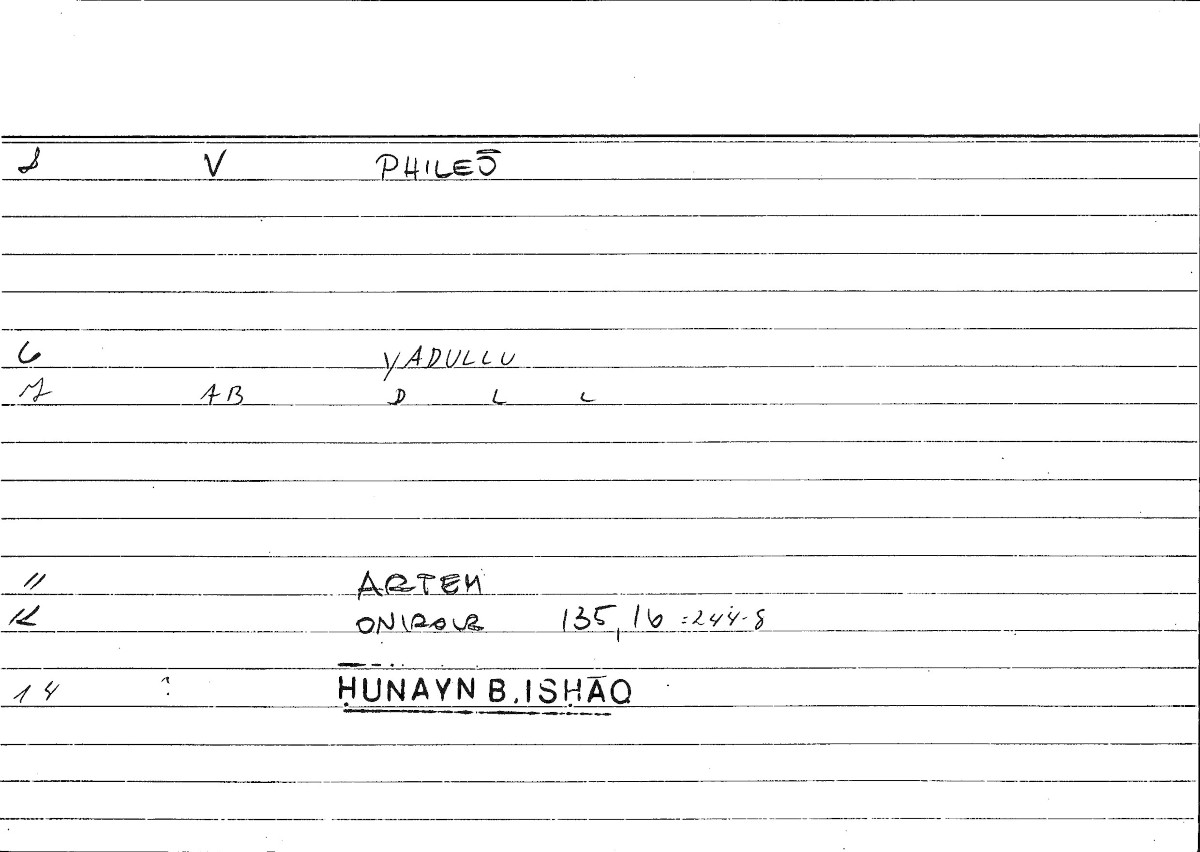 1 V PHILEŌ
6 YADULLU
7 AB D L L
11 ARTEM
12 ONIROCR 135,16 =244-8
14 ? ḤUNAYN B. ISḤĀQ